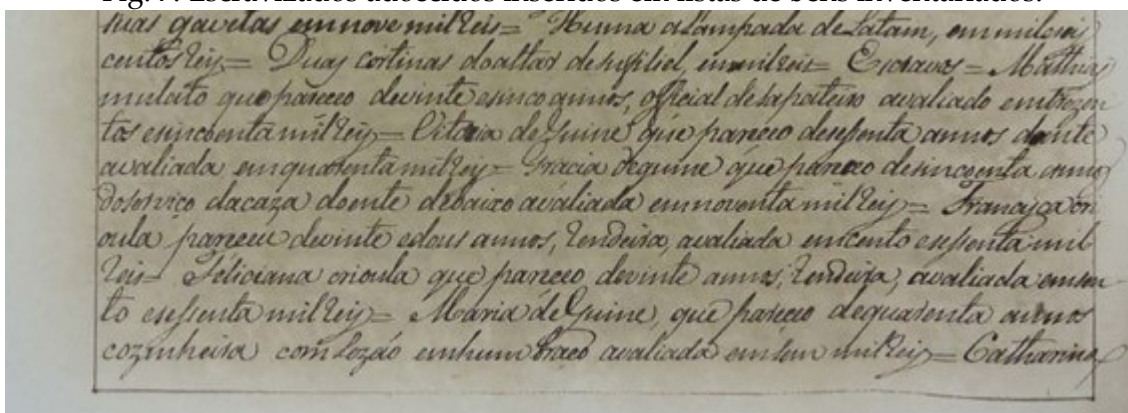 Fig. : Escravizados adoecidos inseridos em listas de bens inventariados.
suas gavetas emnove milReis = Huma alampada de Latam, emmilseis
centos Reis = Duas cortinas doaltar de emmilReis = Escravos = Mathias
mulato que pareceo devinte esinco annos, official desapateiro avaliado emtrezen
tos esincoenta mil Reis = Vitoria de Guine que pareceo desessenta annos doente
avaliada emquarenta mil Reis = Gracia deguine que pareceo desincoenta annos
doservico dacaza doente debaixo avaliada emnoventa mil Reis = Francisca cri
oula pareceu devinte edous annos, Rendeira, avaliada emcento esessenta mil
Reis = Feliciana crioula que pareceo devinte annos, Rendeira, avaliada emsen
to esessenta mil Reis = Maria de Guine, que pareceo dequarenta annos
cozinheira com lezáo emhum braco avaliada emsem mil Reis = Catharina